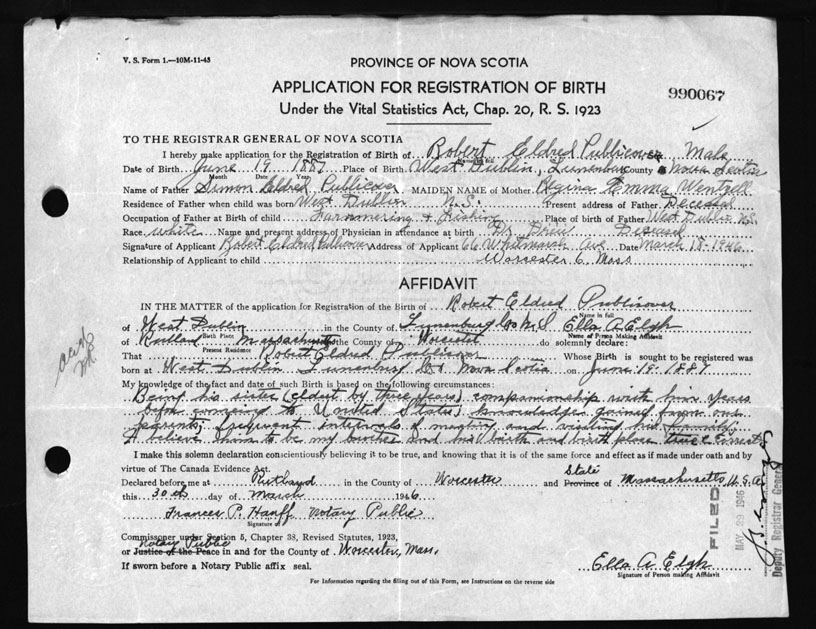 V. S. Form 1.—10M-11-45
PROVINCE OF NOVA SCOTIA
APPLICATION FOR REGISTRATION OF BIRTH
990067
Under the Vital Statistics Act, Chap. 20, R. S. 1923
TO THE REGISTRAR GENERAL OF NOVA SCOTIA
I hereby make application for the Registration of Birth of Robert Eldred Publicover Male
Date of Birth June 19 1887 Place of Birth West Dublin, Lunenburg County Nova Scotia
Month Date Year
Name of Father Simon Eldred Publicover MAIDEN NAME of Mother Regina Emma Wentzell
Residence of Father when child was born West Dublin N.S. Present address of Father Deceased
Occupation of Father at Birth of child Farmmering & Fishing Place of birth of Father West Dublin N.S.
Race white Name and present address of Physician in attendance at birth Dr. Drew Deceased
Signature of Applicant Robert Eldred Publicover Address of Applicant 66 Whitmarsh Ave Date March 18-1946
Relationship of Applicant to child Worcester 6, Mass
AFFIDAVIT
IN THE MATTER of the application for Registration of the Birth of Robert Eldred Publicover
Name in full
of West Dublin in the County of Lunenburg Co N.S Ella A Elgh
Birth Place Name of Person Making Affidavit
of Rutland Massachusetts the County of Worcester do solemnly declare:
Present Residence
That Robert Eldred Publicover Whose Birth is sought to be registered was
born at West Dublin Lunenburg Nova Scotia on June 19. 1887
My knowledge of the fact and date of such Birth is based on the following circumstances:
Being his sister (eldest by three years) companionship with him years
before comeing to United States; knowledge gained from our
parents; frequent intervals of meeting and visiting his family;
I believe him to be my brother and his birth and birth place true & correct
I make this solemn declaration conscientiously believing it to be true, and knowing that it is of the same force and effect as if made under oath and by
virtue of The Canada Evidence Act.
Declared before me at Rutland in the County of Worcester and State Province of Massachusetts U.S.A.
this 30th day of March 1946
Frances P. Hanff Notary Public
Signature of
Commissoner under Section 5, Chapter 38, Revised Statutes, 1923,
Notary Public
or Justice of the Peace in and for the County of Worcester, Mass.
If sworn before a Notary Public affix seal.
Ella A Elgh
Signature of Person making Affidavit
For Information regarding the filling out of this Form, see Instructions on the reverse side
FILED
1946
Deputy Registrar General